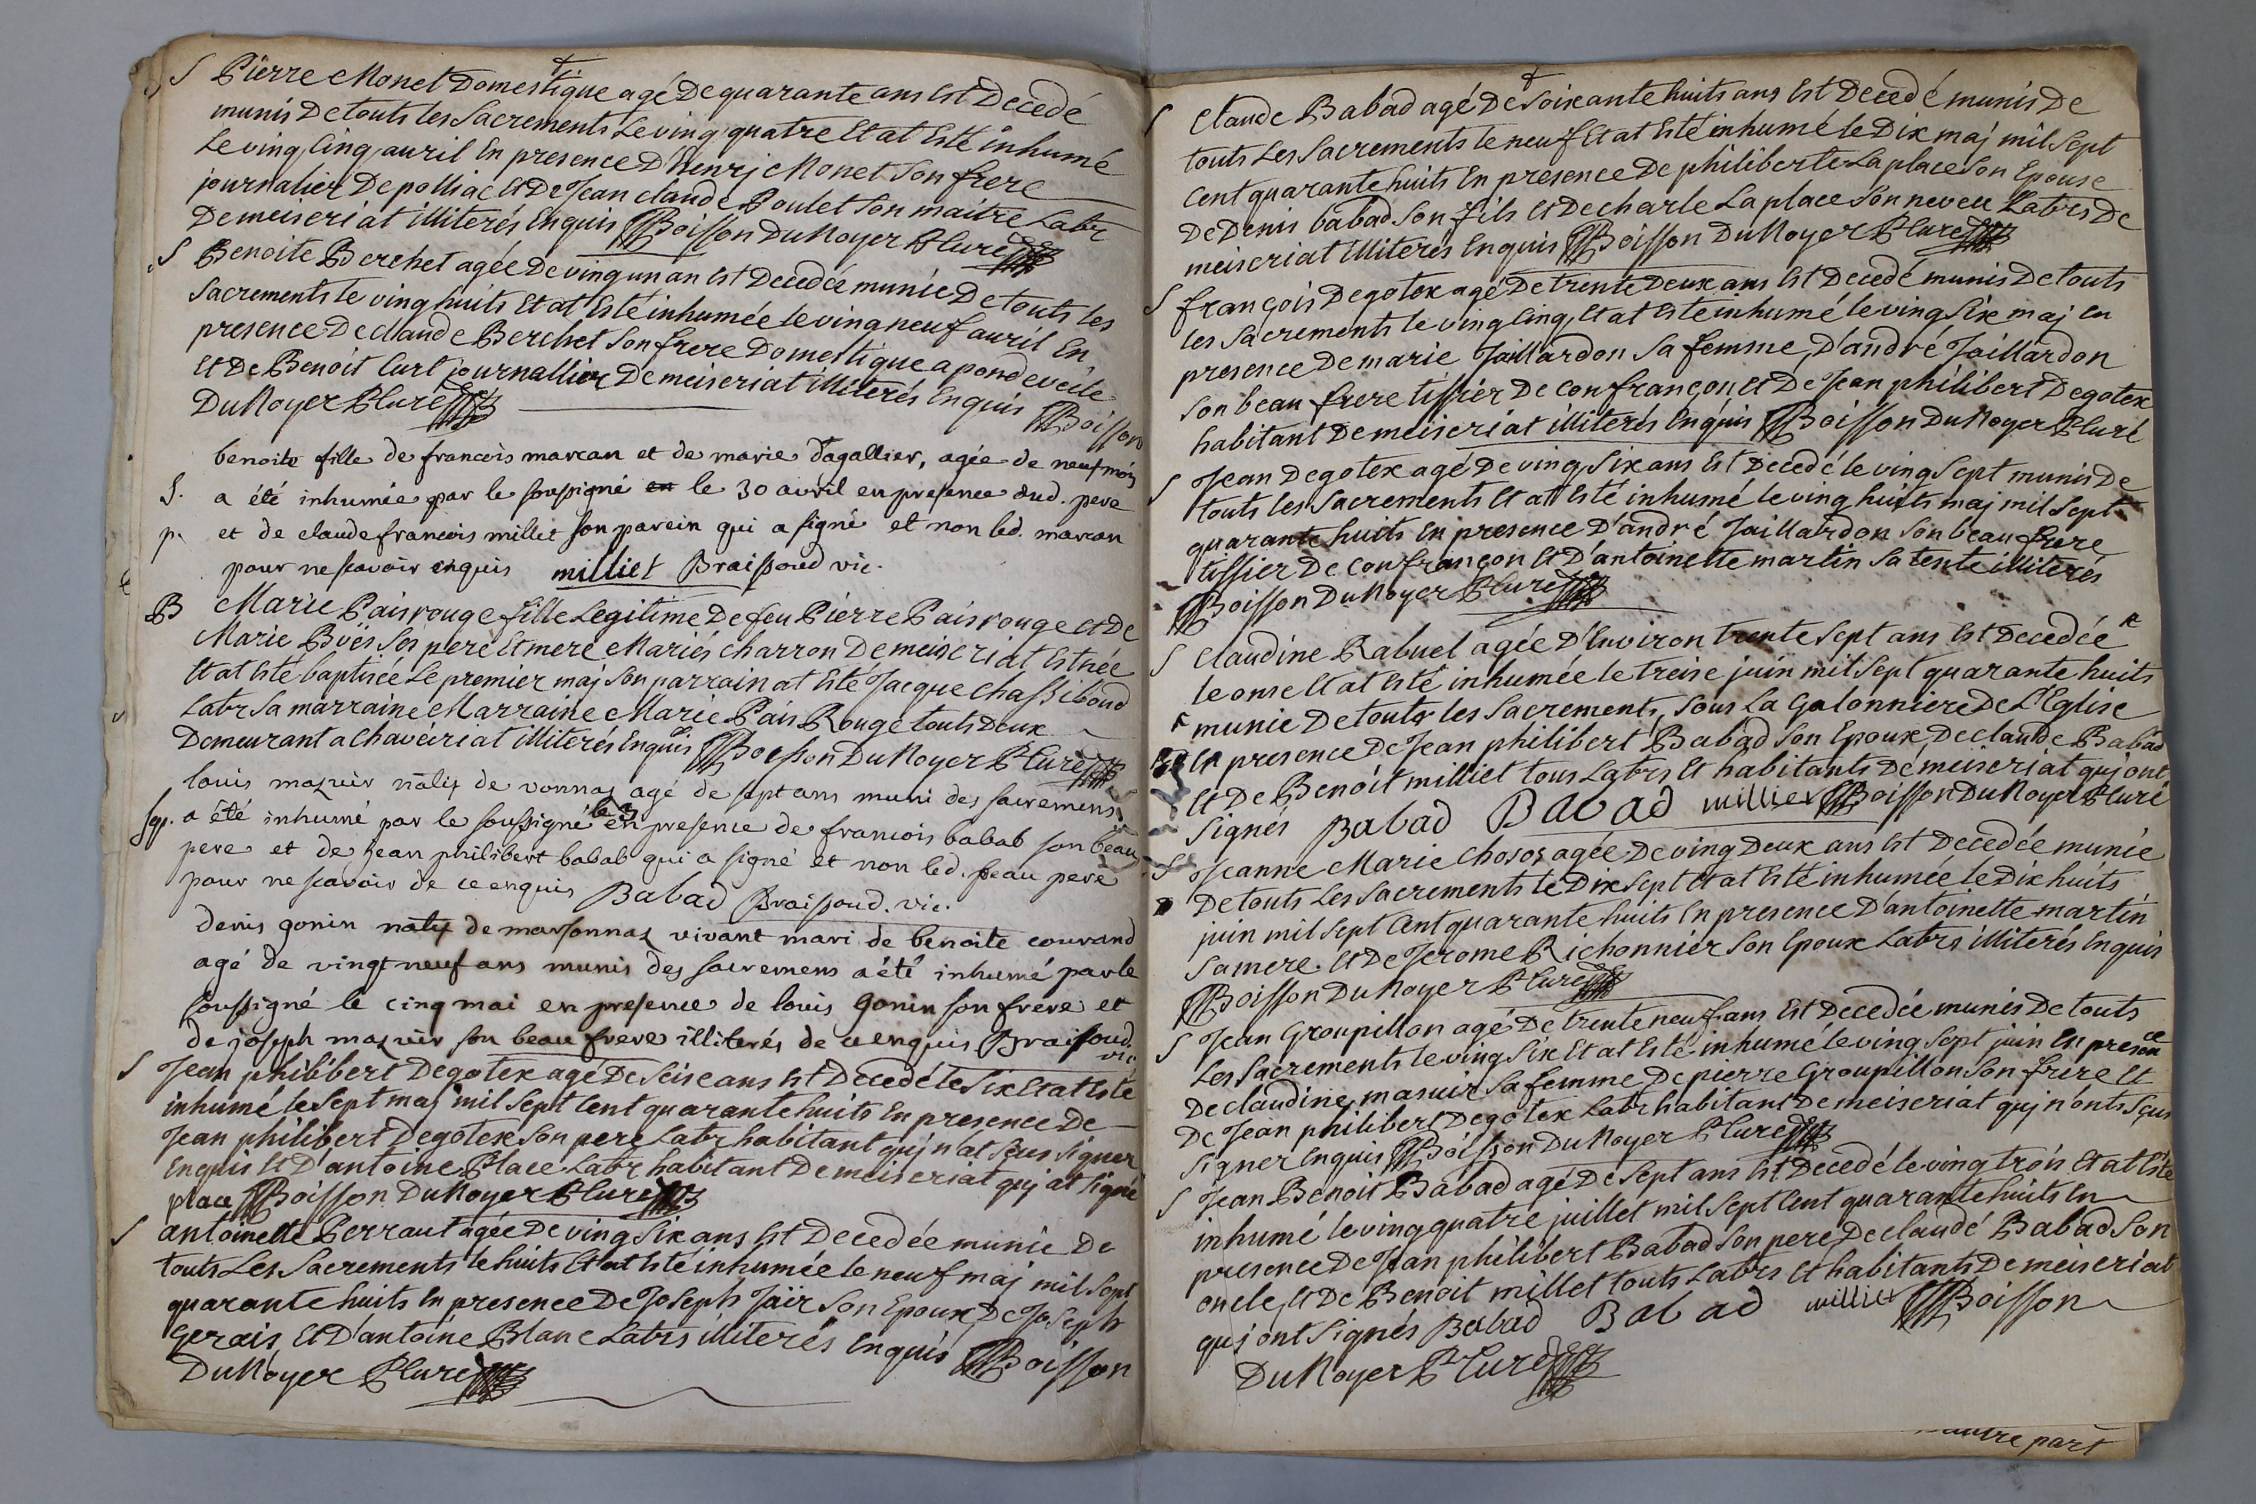 S Pierre Monet Domestique agé De quarante ans Est Decedé
munis De touts les Sacrements Le ving quatre Et at Esté inhumé
Le ving Cinq auril En presence D'henrj Monet Son frere
journalier De polliac Et De Jean claude Poulet Son maitre Labr
De meiseriat illiterés Enquis Boisson DuNoyer P Curé
S Benoite Berchet agée De ving un an Est Decedée munie De touts les
Sacrements le ving huits Et at Esté inhumée le ving neuf auril En
presence De claude Berchet Son frere Domestique a pondeveile
Et De Benoit Curt journallier De meiseriat illiterés Enquis Boisson
DuNoyer P Curé
benoite fille de francois marcan et de marie dagallier, agée de neuf mois
S. a été inhumée par le soussigné le 30 avril en presence dud. pere
p. et de claude francois milliet son parein qui a signé et non led. marcan
pour ne scavoir enquis milliet Braissoud vic.
B Marie Pais rouge fille Legitime De feu Pierre Pais rouge et De
Marie Böés Ses pere Et mere Mariés charron De meiseriat Est née
Et at Esté baptisée Le premier maj Son parrain at Esté Jacque Chassiboud
Labr Sa marraine Marraine Marie Pais Rouge touts Deux
Demeurant a Chaveiriat illiterés Enquis Boisson DuNoyer P Curé
louis mazuir natif de vonnas agé de sept ans muni des sacremens
Sp. a été inhumé par le soussigné le 3 en presence de francois babab son beau
pere et de jean philibert babab qui a signé et non led. beau pere
pour ne scavoir de ce enquis Babad Braissoud. vic.
denis gonin natif de marsonnas vivant mari de benoite courand
agé de vingt neuf ans munis des sacremens a été inhumé par le
soussigné le cinq mai en presence de louis gonin son frere et
de joseph mazuir son beau frere illiterés de ce enquis Braissoud.
vic
S Jean philibert Degotex agé De Seise ans Est Decedé le Six Et at Esté
inhumé le Sept maj mil Sept Cent quarante huits En presence De
Jean philibert Degotex Son pere Labr habitant quj n'at Sçus Signer
Enquis Et D'antoine Place Labr habitant De meiseriat quj at Signé
place Boisson DuNoyer P Curé
S antoinette Perraut agée De ving Six ans Est Decedée munie De
touts Les Sacrements le huits Et at Esté inhumée le neuf maj mil Sept
quarante huits En presence De Joseph Jair Son Epoux De Joseph
Gerais Et D'antoine Blanc Labrs illiterés Enquis Boisson
DuNoyer P Curé
S Claude Babad agé De Soixante huits ans Est Decedé munis De
touts Les Sacrements le neuf Et at Esté inhumé le Dix maj mil Sept
Cent quarante huits En presence De philiberte La place Son Epouse
De Denis babad Son fils Et De charle La place Son neveu Labrs De
meiseriat illiterés Enquis Boisson DuNoyer P Curé
S françois Degotex agé De trente Deux ans Est Decedé munis De touts
les Sacrements le ving Cinq Et at Esté inhumé le ving Six maj En
presence De marie Jaillardon Sa femme, D'andré Jaillardon
Son beau frere tissier De confrançon Et De Jean philibert Degotex
habitant De meiseriat illiterés Enquis Boisson DuNoyer P Curé
S Jean Degotex agé De ving Six ans Est Decedé le ving Sept munis De
touts les Sacrements Et at Esté inhumé le ving huits maj mil Sept
quarante huits En presence D'andré Jaillardon Son beau frere
tissier De confrançon Et D'antoinette martin Sa tente illiterés
Boisson DuNoyer P Curé
S Claudine Rabuel agée D'Environ trente Sept ans Est Decedée
le onse Et at Esté inhumée le treise juin mil Sept quarante huits
munie De touts les Sacrements, Sous La Galonniere De L'Eglise
En presence De Jean philibert Babad Son Epoux De claude Babad
Et De Benoit milliet tous Labrs Et habitants De meiseriat quj ont
Signés Babad Babad milliet Boisson DuNoyer P Curé
S Jeanne Marie Chosos agée De ving Deux ans Est Decedée munie
De touts Les Sacrements le Dix Sept Et at Esté inhumée le Dix huits
juin mil Sept Cent quarante huits En presence D'antoinette martin
Sa mere Et De Jerome Richonnier Son Epoux Labrs illiterés Enquis
Boisson DuNoyer P Curé
S Jean Groupillon agé De trente neuf ans Est Decedée munis De touts
Les Sacrements le ving Six Et at Esté inhumé le ving Sept juin En presence
De claudine masuir Sa femme De pierre Groupillon Son frere Et
De Jean philibert Degotex Labr habitant De meiseriat quj n'onts Sçus
Signer Enquis Boisson DuNoyer P Curé
S Jean Benoit Babad agé De Sept ans Est Decedé le ving trois Et at Esté
inhumé le ving quatre juillet mil Sept Cent quarante huits En
presence De Jean philibert Babad Son pere De claude Babad Son
oncle, Et De Benoit millet touts Labrs Et habitants De meiseriat
quj ont Signés Babad Babad milliet Boisson
DuNoyer P Curé
autre part